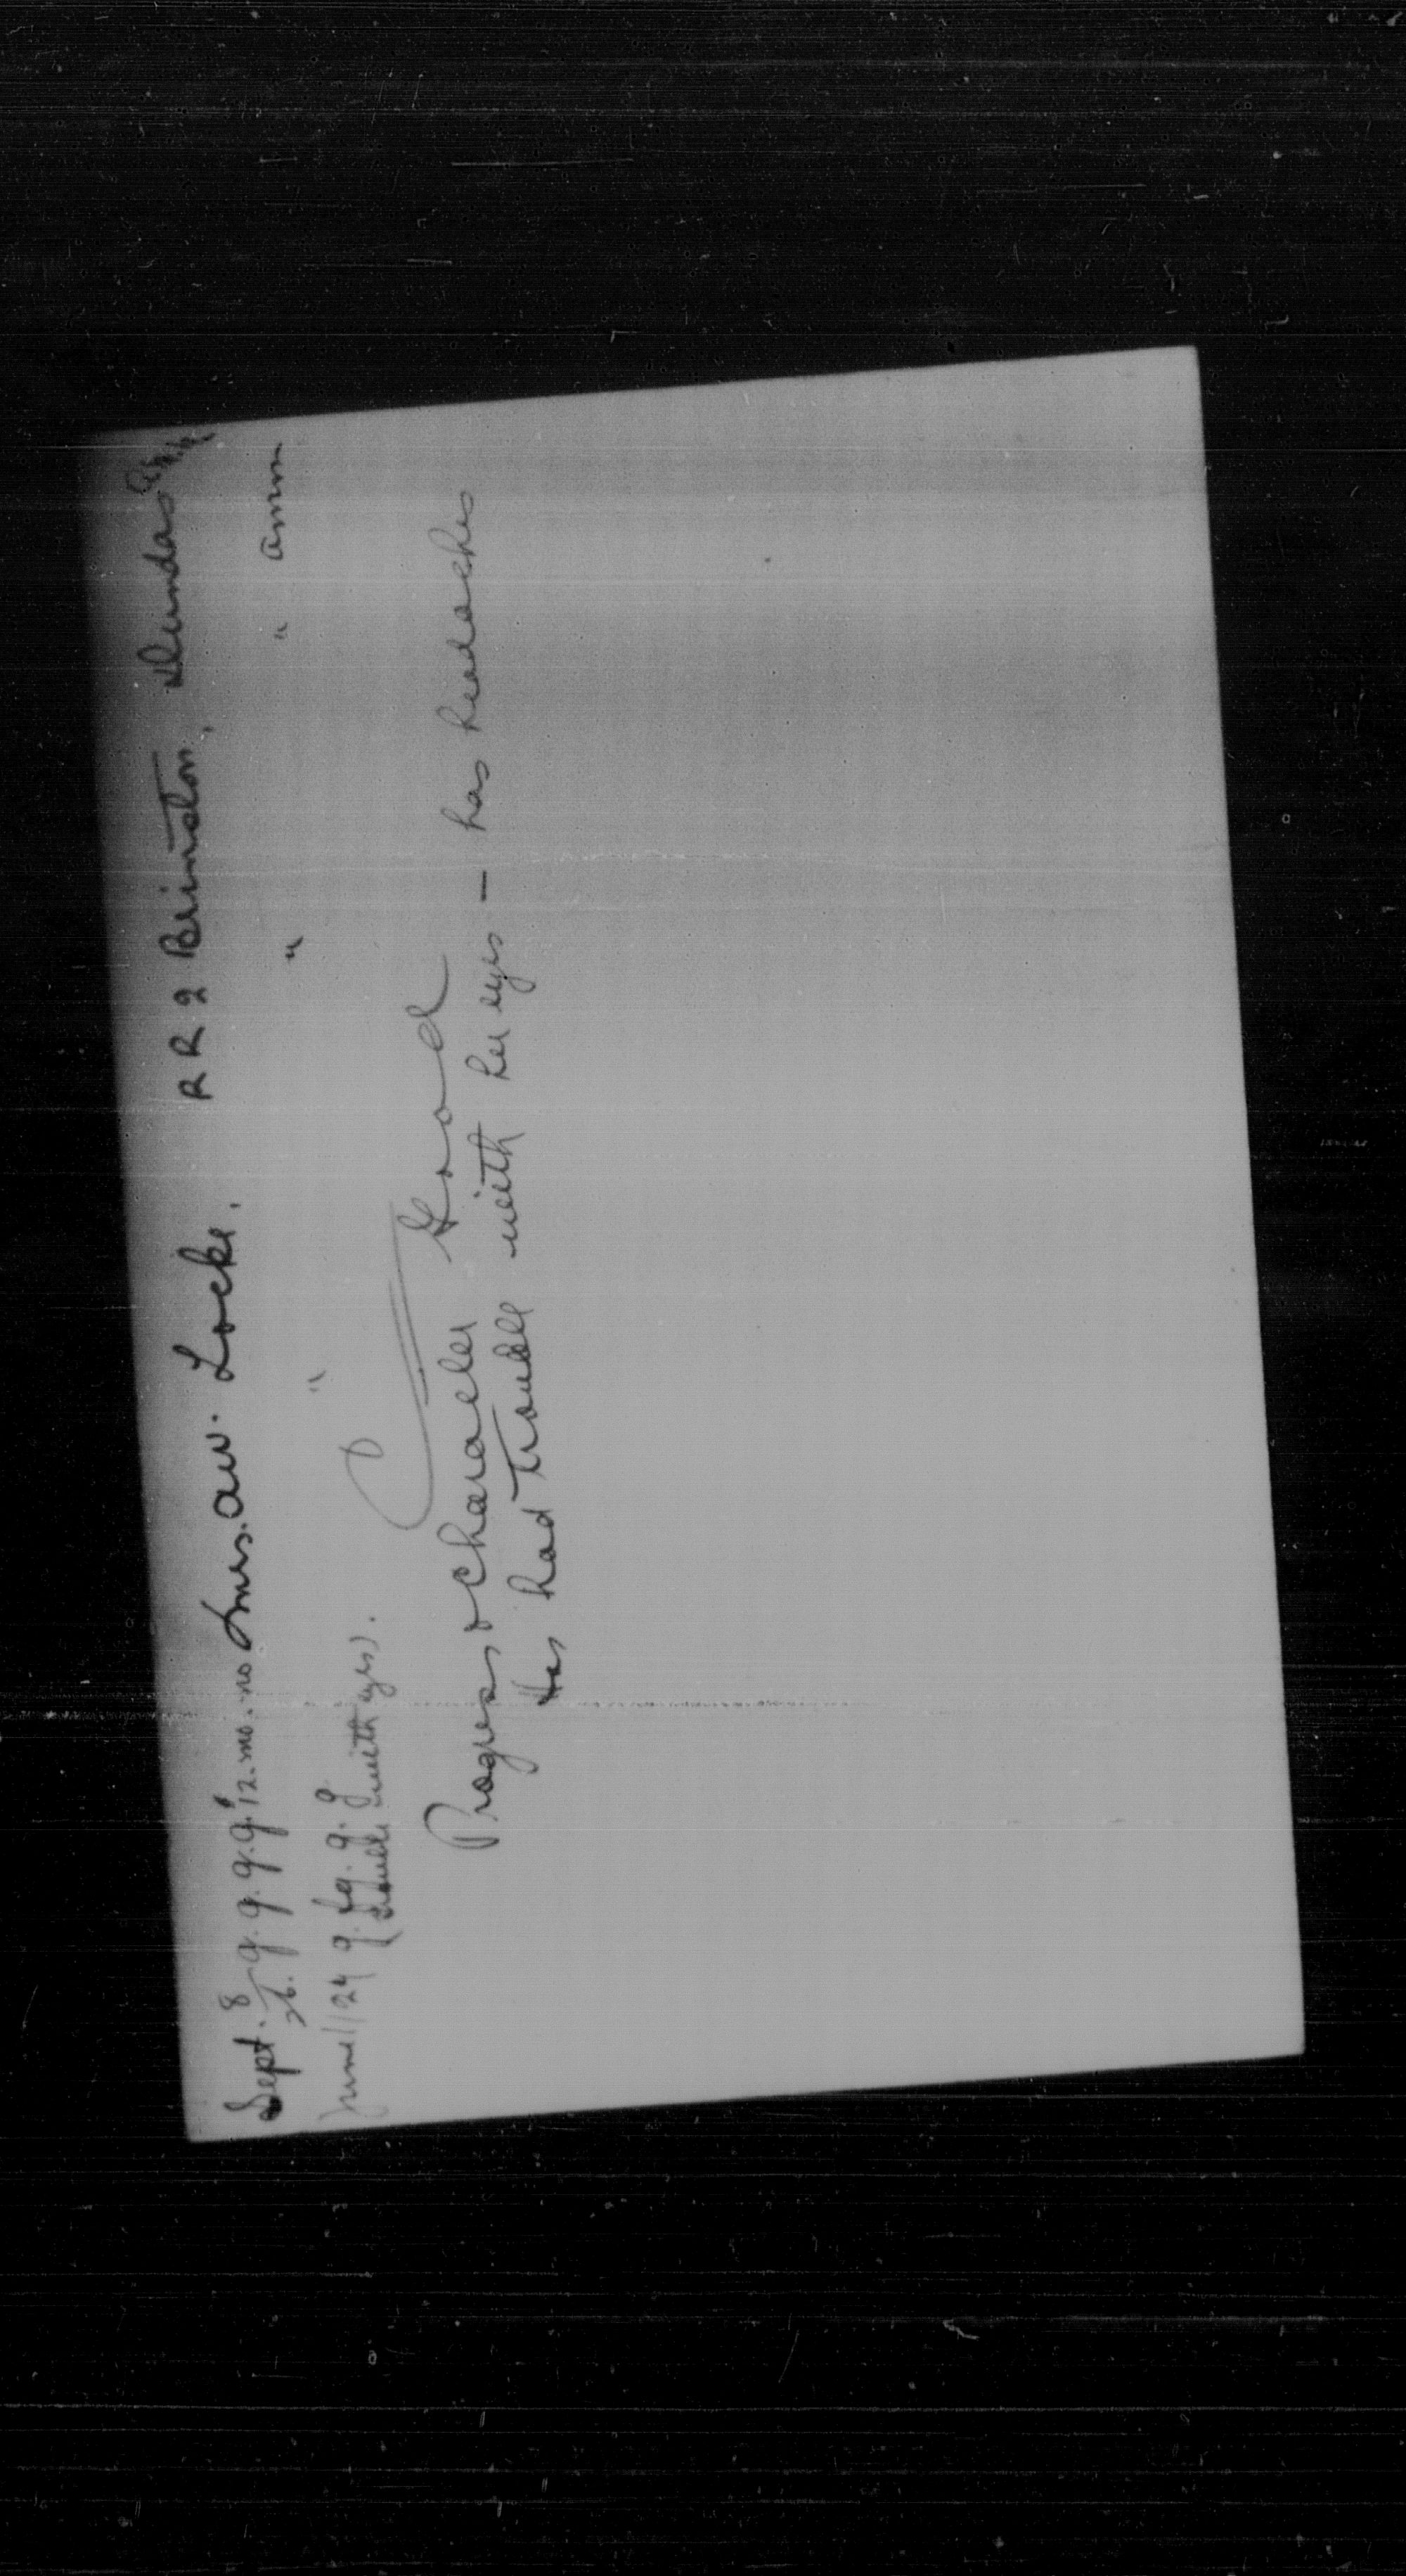 Sept. 8/26. g. g. g. g. 12. mo. no Mrs. A.W. Locke, R R 2 Brinston, Dundas
June 1/24 g. fg. g. g " " " amm
(trouble with eyes).
Progress & character Good
Has had trouble with her eyes — has headaches